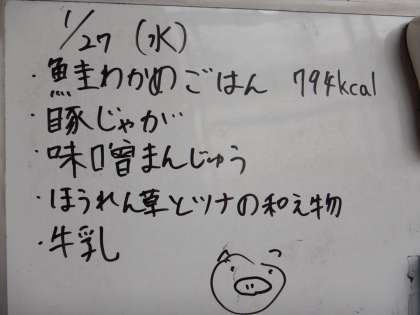 1/27 (水)
・鮭わかめごはん 794kcal
・豚じゃが
・味噌まんじゅう
・ほうれん草とツナの和え物
・牛乳